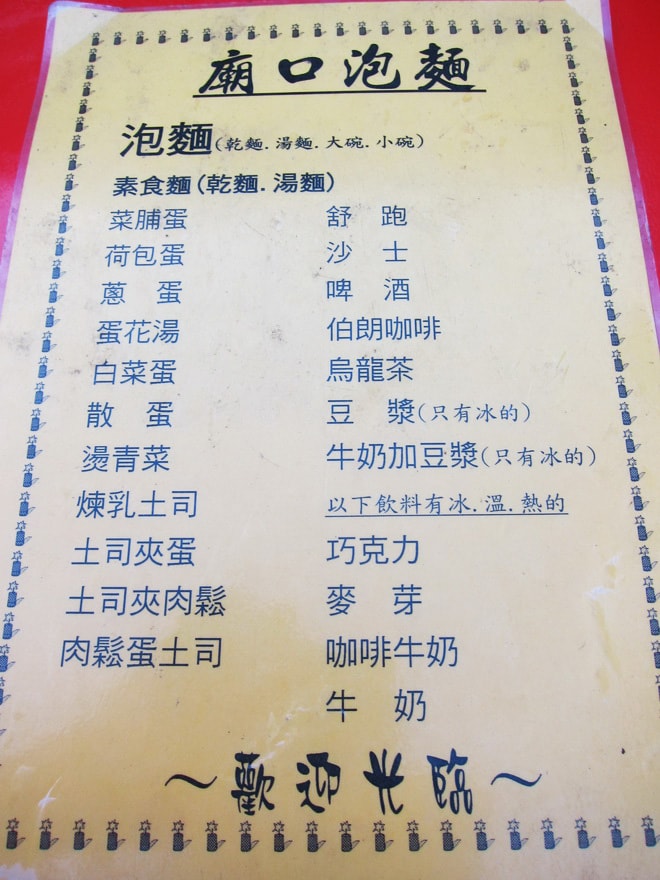 廟口泡麵
泡麵(乾麵.湯麵.大碗.小碗)
素食麵(乾麵.湯麵)
菜脯蛋
荷包蛋
蔥 蛋
蛋花湯
白菜蛋
散 蛋
燙青菜
煉乳土司
土司夾蛋
土司夾肉鬆
肉鬆蛋土司
舒 跑
沙 士
啤 酒
伯朗咖啡
烏龍茶
豆 漿(只有冰的)
牛奶加豆漿(只有冰的)
以下飲料有冰.溫.熱的
巧克力
麥 芽
咖啡牛奶
牛 奶
~歡迎光臨~